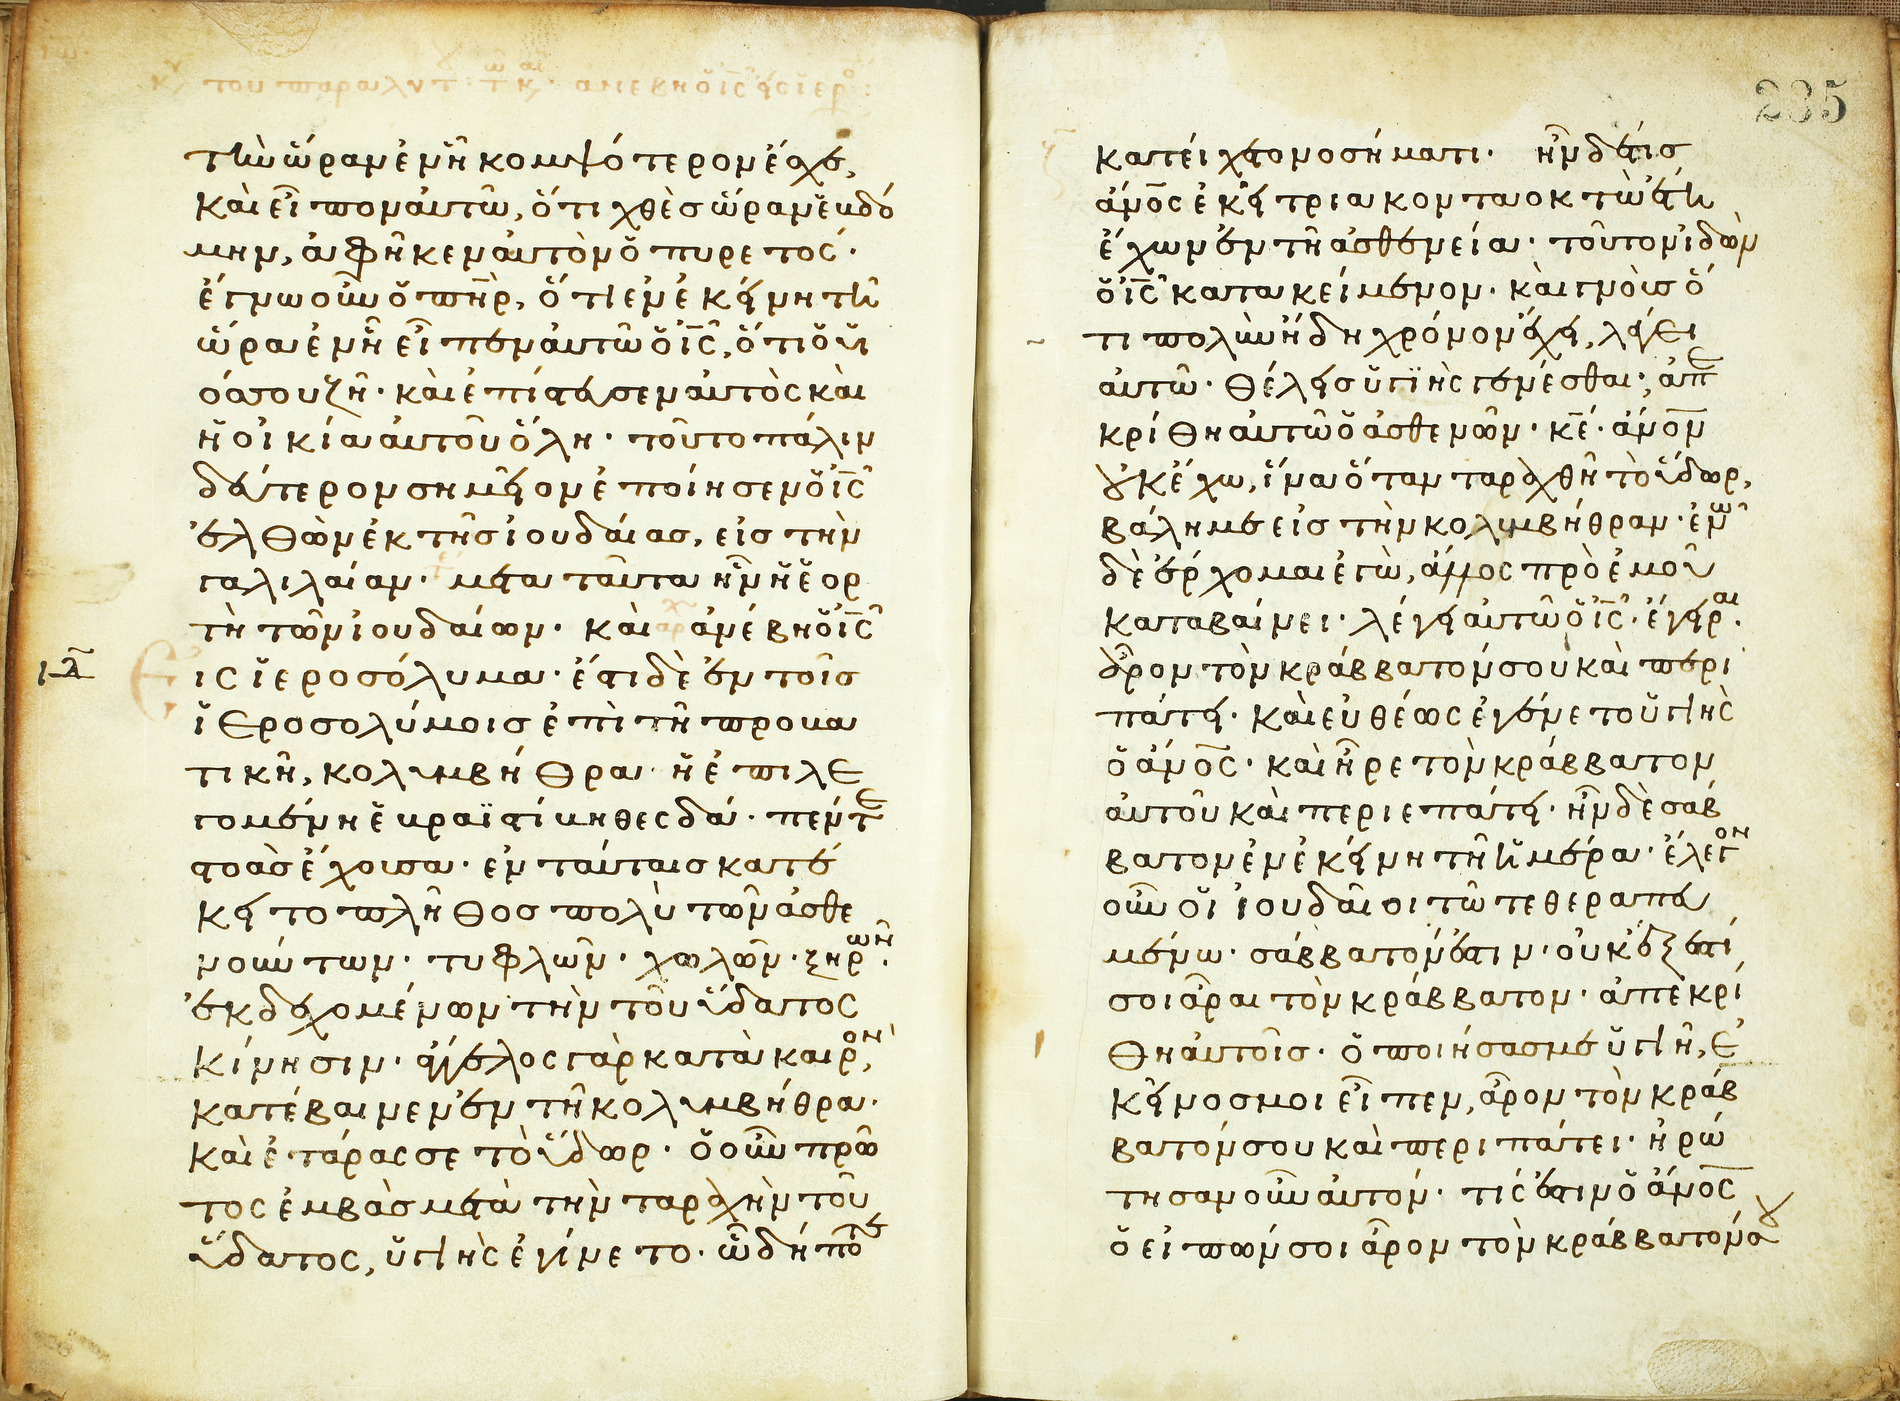 κυ του παραλυτ: τω κ αι. ανεβη ὁ ις εις ιερο:
τὴν ὥραν ἐν ἧ κομψότερον ἔσχε,
καὶ εἶπον αυτῶ, ὅτι χθὲς ὥραν ἑβδό
μην, ἀφῆκεν ἀυτὸν ὁ πυρετός·
ἔγνω οὖν ὁ πηρ, ὅτι ἐν ἐκείνη τῆ
ὥρα ἐν ἧ εἶπεν ἀυτῶ ὁ ις, ὅτι ὁ υἱ
ός σου ζῆ· καὶ ἐπίστευσεν αυτὸς καὶ
ἡ οἰκία ἀυτοῦ ὅλη· τοῦτο πάλιν
δεύτερον σημεῖον ἐποίησεν ὁ ις
ἐλθὼν ἐκ τῆς ἰουδάιας, εἰς τὴν
γαλιλαίαν· μετα ταῦτα ἦν ἡ ἑορ
τὴ τῶν ἰουδαίων· καὶ ἀνέβη ὁ ις
εις ἱεροσόλυμα· ἔστι δὲ ἐν τοῖς
ἱεροσολύμοις ἐπὶ τῆ προβα
τικῆ, κολυμβήθρα ἡ ἐπιλε
γομένη ἑβραϊστί βηθεσδά· πέντε
στοὰς ἔχουσα· ἐν ταύταις κατέ
κειτο πλῆθος πολὺ τῶν ἀσθε
νούντων· τυφλῶν· χωλῶν· ξηρῶν·
ἐκδεχομένων τὴν τοῦ ὕδατος
κίνησιν· ἄγγελος γὰρ κατὰ καιρὸν,
κατέβαινεν ἐν τῆ κολυμβήθρα·
καὶ ἐτάρασσε τὸ ὕδωρ· ὁ οὖν πρῶ
τος ἐμβὰς μετὰ τὴν ταραχὴν τοῦ
ὕδατος, ὑγιὴς ἐγίνετο· ὧ δήποτε
235
κατείχετο νοσήματι· ἦν δέ τις
ἀνος ἐκεῖ τριακονταοκτὼ ἔτη
ἔχων ἐν τῆ ἀσθενεία· τοῦτον ἰδὼν
ὁ ις κατακείμενον· καὶ γνοὺς ὅ
τι πολὺν ἤδη χρόνον ἔχει, λέγει
ἀυτῶ· θέλεις ὑγιὴς γενέσθαι; ἀπε
κρίθη αυτῶ ὁ ἀσθενῶν· κε· ἀνον
οὐκ ἔχω, ἵνα ὅταν ταραχθῆ τὸ ὕδωρ,
βάλη με εἰς τὴν κολυμβήθραν· ἐν ὧ
δὲ ἔρχομαι ἐγὼ, ἄλλος πρὸ ἐμοῦ
καταβαίνει· λέγει αυτῶ ὁ ις· ἔγειραι·
ἆρον τὸν κράββατόν σου καὶ περι
πάτει· καὶ εὐθέως ἐγένετο ὑγιὴς
ὁ ἀνος· καὶ ἦρε τὸν κράββατον
ἀυτοῦ καὶ περιεπάτει· ἦν δὲ σάβ
βατον ἐν ἐκείνη τῆ ἡμέρα· ἔλεγον
οὖν οἱ ἰουδαῖοι τῶ τεθεραπευ
μένω· σάββατόν ἐστιν· οὐκ ἔξεστί
σοι ἆραι τὸν κράββατον· ἀπεκρί
θη ἀυτοῖς· ὁ ποιήσας με ὑγιῆ, ἐ
κεῖνος μοι εἶπεν, ἆρον τὸν κράβ
βατόν σου καὶ περιπάτει· ἠρώ
τησαν οὖν ἀυτόν· τίς ἐστιν ὁ ἀνος
ὁ ειπών σοι ἆρον τὸν κράββατόν σου